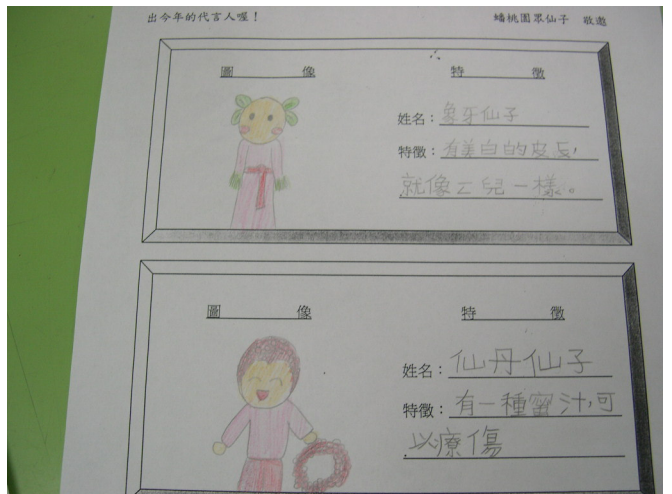 出今年的代言人喔！
蟠桃園眾仙子 敬邀
圖 像
特 徵
姓名：象牙仙子
特徵：有美白的皮长，
就像ㄈ兒一樣。
圖 像
特 徵
姓名：仙丹仙子
特徵：有一種蜜汁，可
以療傷